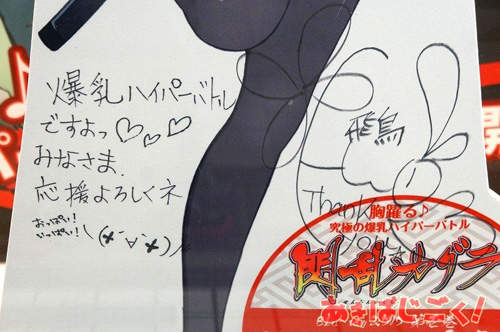 爆乳ハイパーバトル
ですよっ♡♡♡
みなさま、
応援よろしくネ
おっぱい!
いっぱい!\(*・∀・*)/
飛鳥
Thank
You
胸躍る♪
究極の爆乳ハイパーバトル
閃乱カグラ